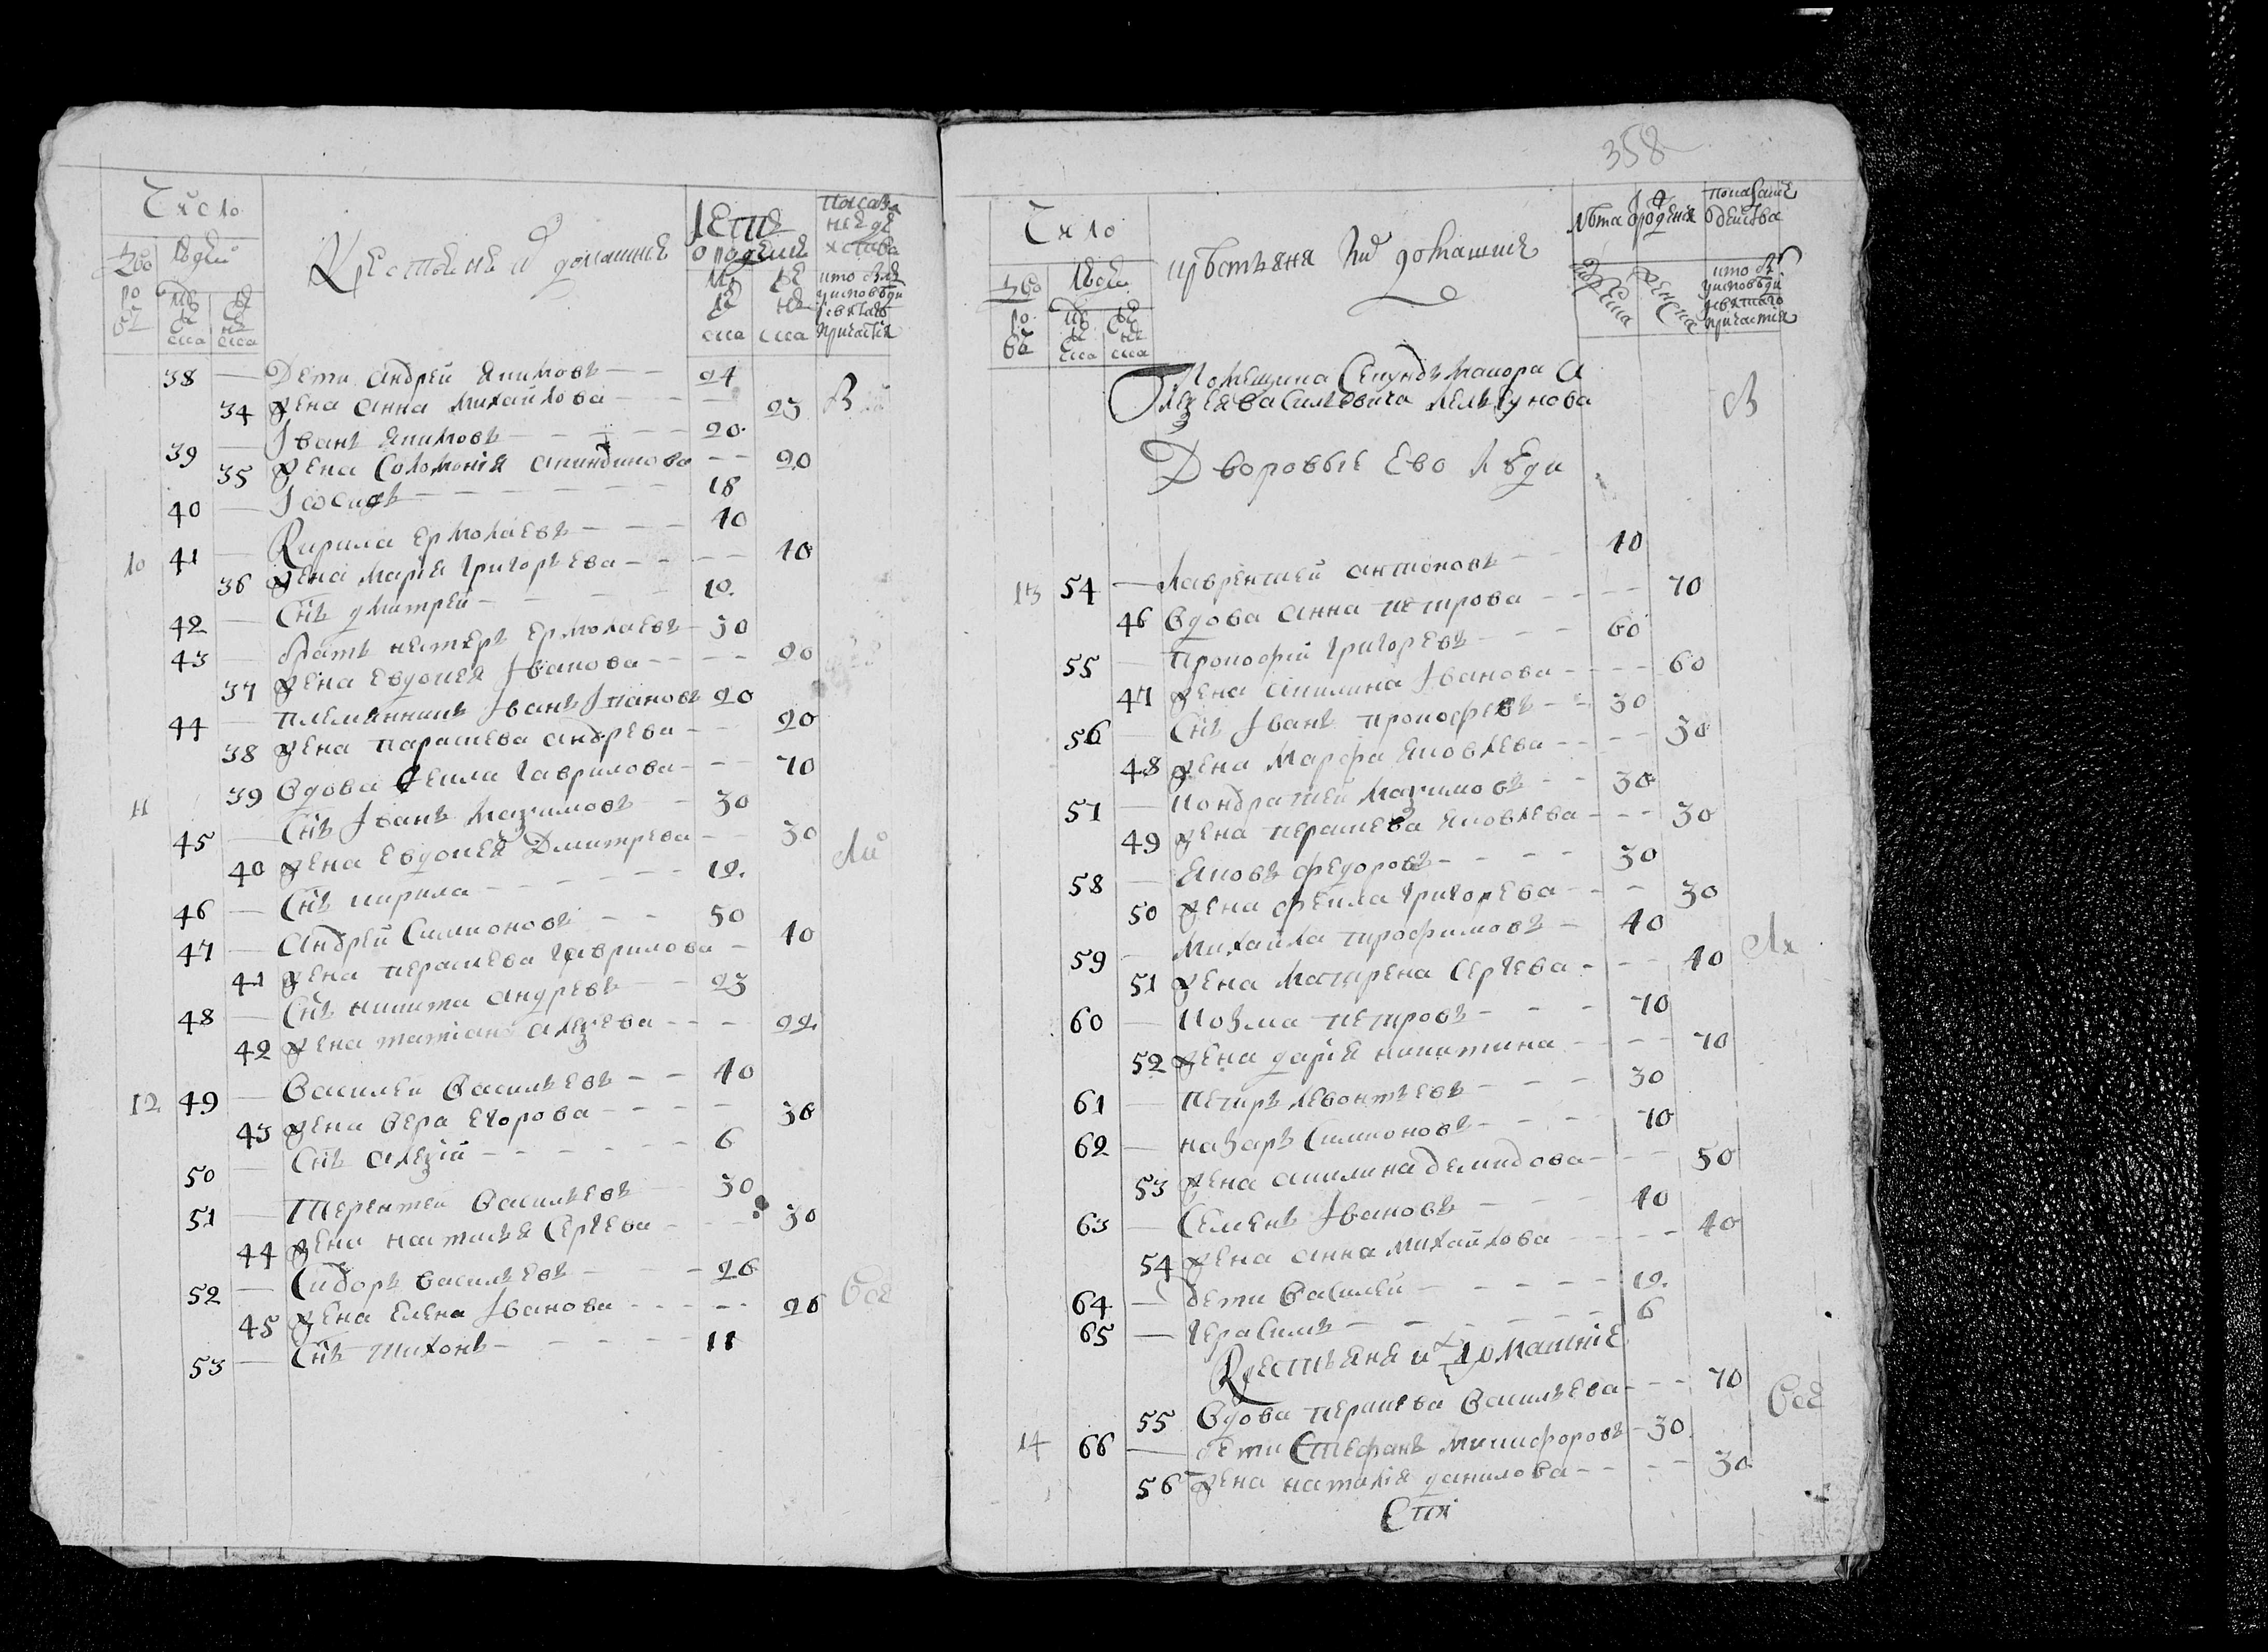 Число
Дво
ро
въ
Людей
Му
ска
Же
нс
ка
Крестьяне и домашние
Лета
о рождения
Му
ска
Же
нска
Показа
ние де
йства
кто былъ
у исповеди
и святаго
причастия
38 — Дети Андрей Якимовъ — — 24
34 жена Анна Михайлова — — — 23
39 — Іванъ Якимовъ — — — 20
35 жена Соломонія Акиндинова — — 20
40 — Іосифъ — — — 18
10 41 — Кирила Ермолаевъ — — — 40
36 жена Марія Григорьева — — — 40
42 — Снъ Дмитрей — — — 10
43 — братъ Нестеръ Ермолаевъ — 30
37 жена Евдокея Іванова — — — 20
44 — племянникъ Іванъ 20
38 жена Парасчева Андрева — — 20
11 39 вдова Гаврилова — — 70
45 — Снъ Іванъ Мазимовъ — — 30
40 жена Евдокея Дмитрева — — 30
46 — Снъ Кирила — — — 12
47 — Андрей Симионовъ — — 50
41 жена Перасчева Гаврилова — 40
48 — Снъ Никита Андревъ — — 23
42 жена Татіана Алезева — — — 22
12 49 — Василей Васильевъ — — 40
43 жена Вера Егорова — — — 30
50 — Снъ Алезій — — — 6
51 — Терентей Васильевъ — 30
44 жена Настасья Сергева — — — 30
52 — Сидоръ Васильевъ — — — 26
45 жена Елена Іванова — — — 26
53 — Снъ Тихонъ — — — 11
358
Число
Дво
ро
въ
Людей
Му
ска
Же
нс
ка
крестьяня и домашние
лета рождения
мужеска
женска
показание
действа
кто былъ
у исповеди
и святаго
причастия
Помещика Секундъ Маиора А
лезея Васильевича
Дворовые ево люди
13 54 — Лаврентей Антоновъ — — 40
46 вдова Анна Петрова — — — 70
55 — Прокофій Григоревъ — — — 60
47 жена Акилина Іванова — — — 60
56 — Снъ Іванъ Прокофевъ — — 30
48 жена Марфа Яковлева — — — 30
57 — Кондратей Мазимовъ — — 30
49 жена Перасчева Яковлева — — — 30
58 — Яковъ Федоровъ — — — 30
50 жена Фекла Григорева — — — 30
59 — Михайла Трофимовъ — 40
51 жена Матрена Сергева — — — 40
60 — Козма Петровъ — — — 70
52 жена Дарія Никитина — — — 70
61 — Петръ Левонтьевъ — — — 30
62 — Назаръ Симионовъ — — — 70
53 жена Акилина Демидова — — — 50
63 — Семенъ Івановъ — — — 40
54 жена Анна Михайлова — — — 40
64 — дети Василей — — — 12
65 — Герасимъ — — — 6
Крестьяня и домашніе
55 вдова Перасчева Васильева — — — 70
14 66 — дети Стефанъ Микифоровъ — 30
56 жена Наталія Данилова — — — 30